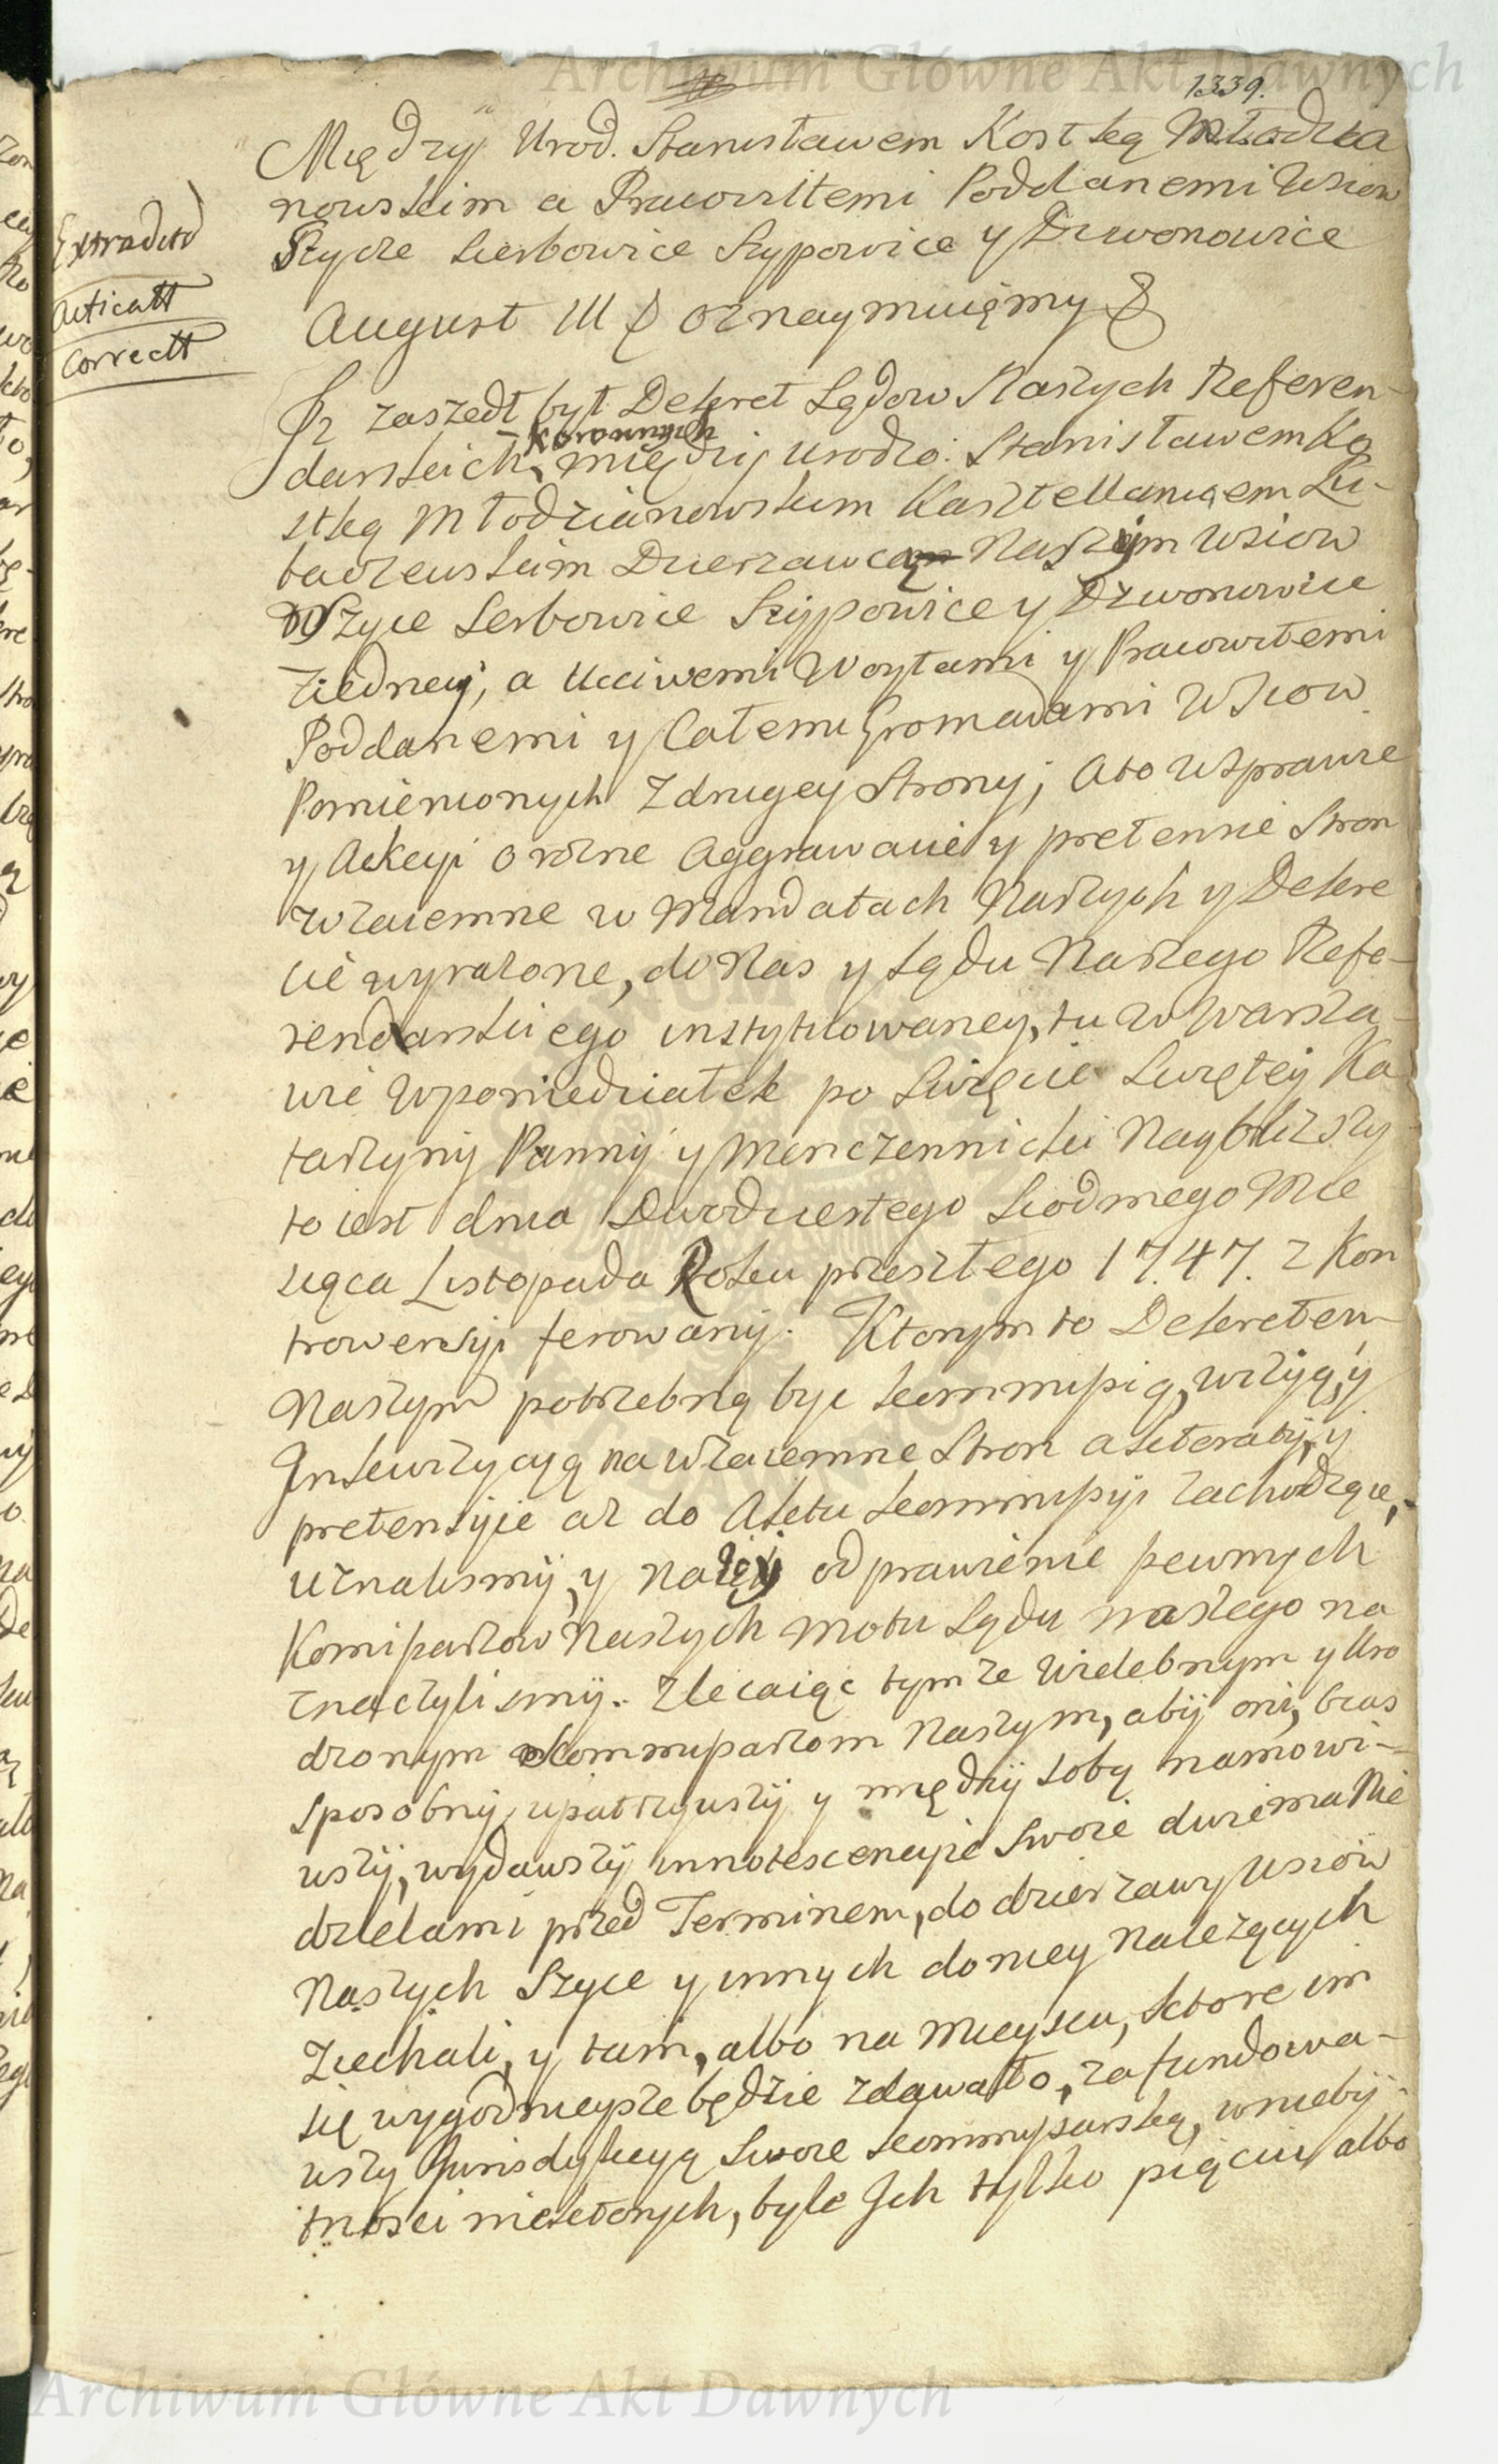 Archiwum Główne Akt Dawnych
1339.
Między Urod. Stanisławem Kostką Młodzia
nowskim a Pracowitemi Poddanemi Wsiow
Szyce Sierbowice Szypowice y Dzwonowice
Extradit
Acticatt
Correctt
August III & oznaymuięmy &
Iż zaszedł był Dekret Sądow Naszych Referen-
darskich koronnych między urodzo: Stanisławem Ko
stką Młodzianowskim Kasztellanicem Lu-
baczewskim Dzierzawcą Naszym Wsiow
Szyce Serbowice Szypowice y Dzwonowice
ziedney, a Uczciwemi Woytami y Pracowitemi
Poddanemi y Całemi Gromadami Wsiow
Pomienionych z drugey Strony, Ato wsprawie
y Akcyi o rożne Aggrawacie y pretensie Stron
wzaiemne w Mandatach Naszych y Dekre
cie wyrażone, do Nas y Sądu Naszego Refe-
rendarskiego instytuowaney, tu w Warsza-
wie w poniedziałek po Swięcie Swiętey Ka
tarzyny Panny y Menczenniczki Naybliższy
to iest dnia Dwódziestego Siodmego Mie
siąca Listopada Roku przeszłego 1747. z Kon
trowersyi ferowany. Ktorym to Dekretem
Naszym potrzebną byc kommissią, wizyą, y
Inkwizycyą na wzaiemne Stron aktoraty, y
pretensyie aż do Aktu kommissyi zachodzące,
uznalismy, y na iey odprawienie pewnych
Komissarzow Naszych motu Sądu naszego na
znaczylismy. Zlecaiąc tymże Wielebnym y Uro
dzonym kommissarzom Naszym, aby oni, czas
sposobny upatrzywszy y między sobą namowi-
wszy, wydawszy innotescencyie Swoie dwiema Nie
dzielami przed Terminem, do dzierzawy Wsiow
Naszych Szyce y innych do niey należących
Ziechali, y tam, albo na mieyscu, ktore im
się wygodnieysze będzie zdawało, zafundowa-
wszy Jurisdykcyą Swoie kommyssarską, w nieby
tności niektorych, byle Ich tylko pięciu albo
Archiwum Główne Akt Dawnych